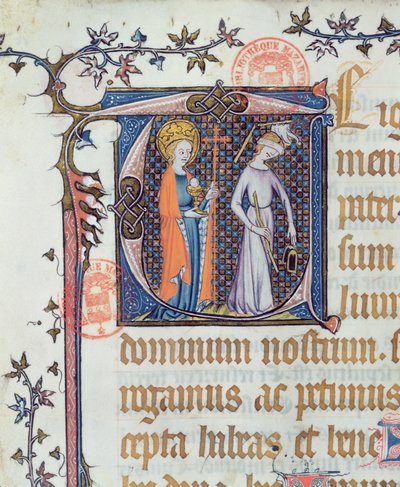 BIBLIOTHÈQUE MAZAR
T E ig
men
pater
sum
lium
dominum nostrum. s
rogamus ac petimus
cepta habeas et bene
hec dona